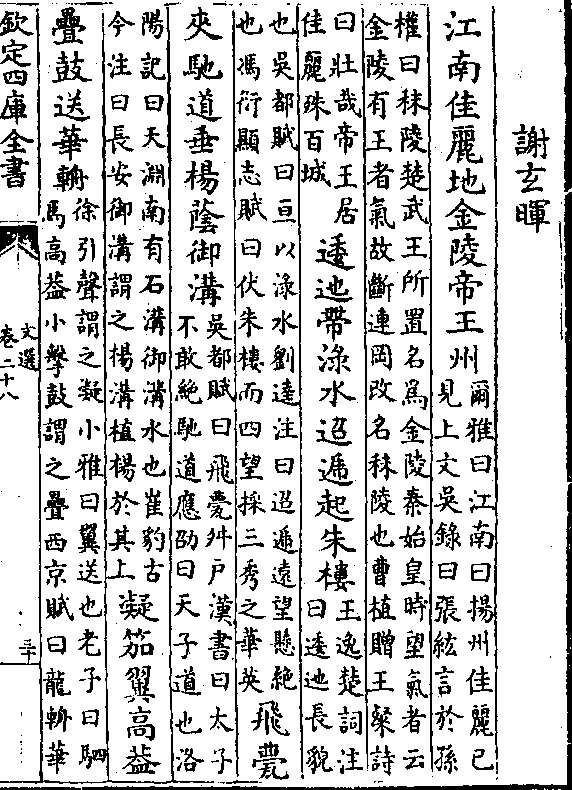 謝玄暉
江南佳麗地金陵帝王州
爾雅曰江南曰揚州佳麗已
見上文吳錄曰張紘言於孫
權曰秣陵楚武王所置名爲金陵秦始皇時望氣者云
金陵有王者氣故斷連岡改名秣陵也曹植贈王粲詩
曰壯哉帝王居
佳麗殊百城
逶迆帶渌水迢遞起朱樓
王逸楚詞注
曰逶迆長貌
也吳都賦曰亘以渌水劉逵注曰迢遞遠望懸絶
也馮衍顯志賦曰伏朱樓而四望採三秀之華英
飛甍
夾馳道垂楊蔭御溝
吳都賦曰飛甍舛戸漢書曰太子
不敢絶馳道應劭曰天子道也洛
陽記曰天淵南有石溝御溝水也崔豹古
今注曰長安御溝謂之楊溝植楊於其上
凝笳翼高葢
疊鼓送華輈
徐引聲謂之凝小雅曰翼送也老子曰駟
馬高葢小擊鼓謂之疊西京賦曰龍輈華
欽定四庫全書
文選
卷二十八
三十